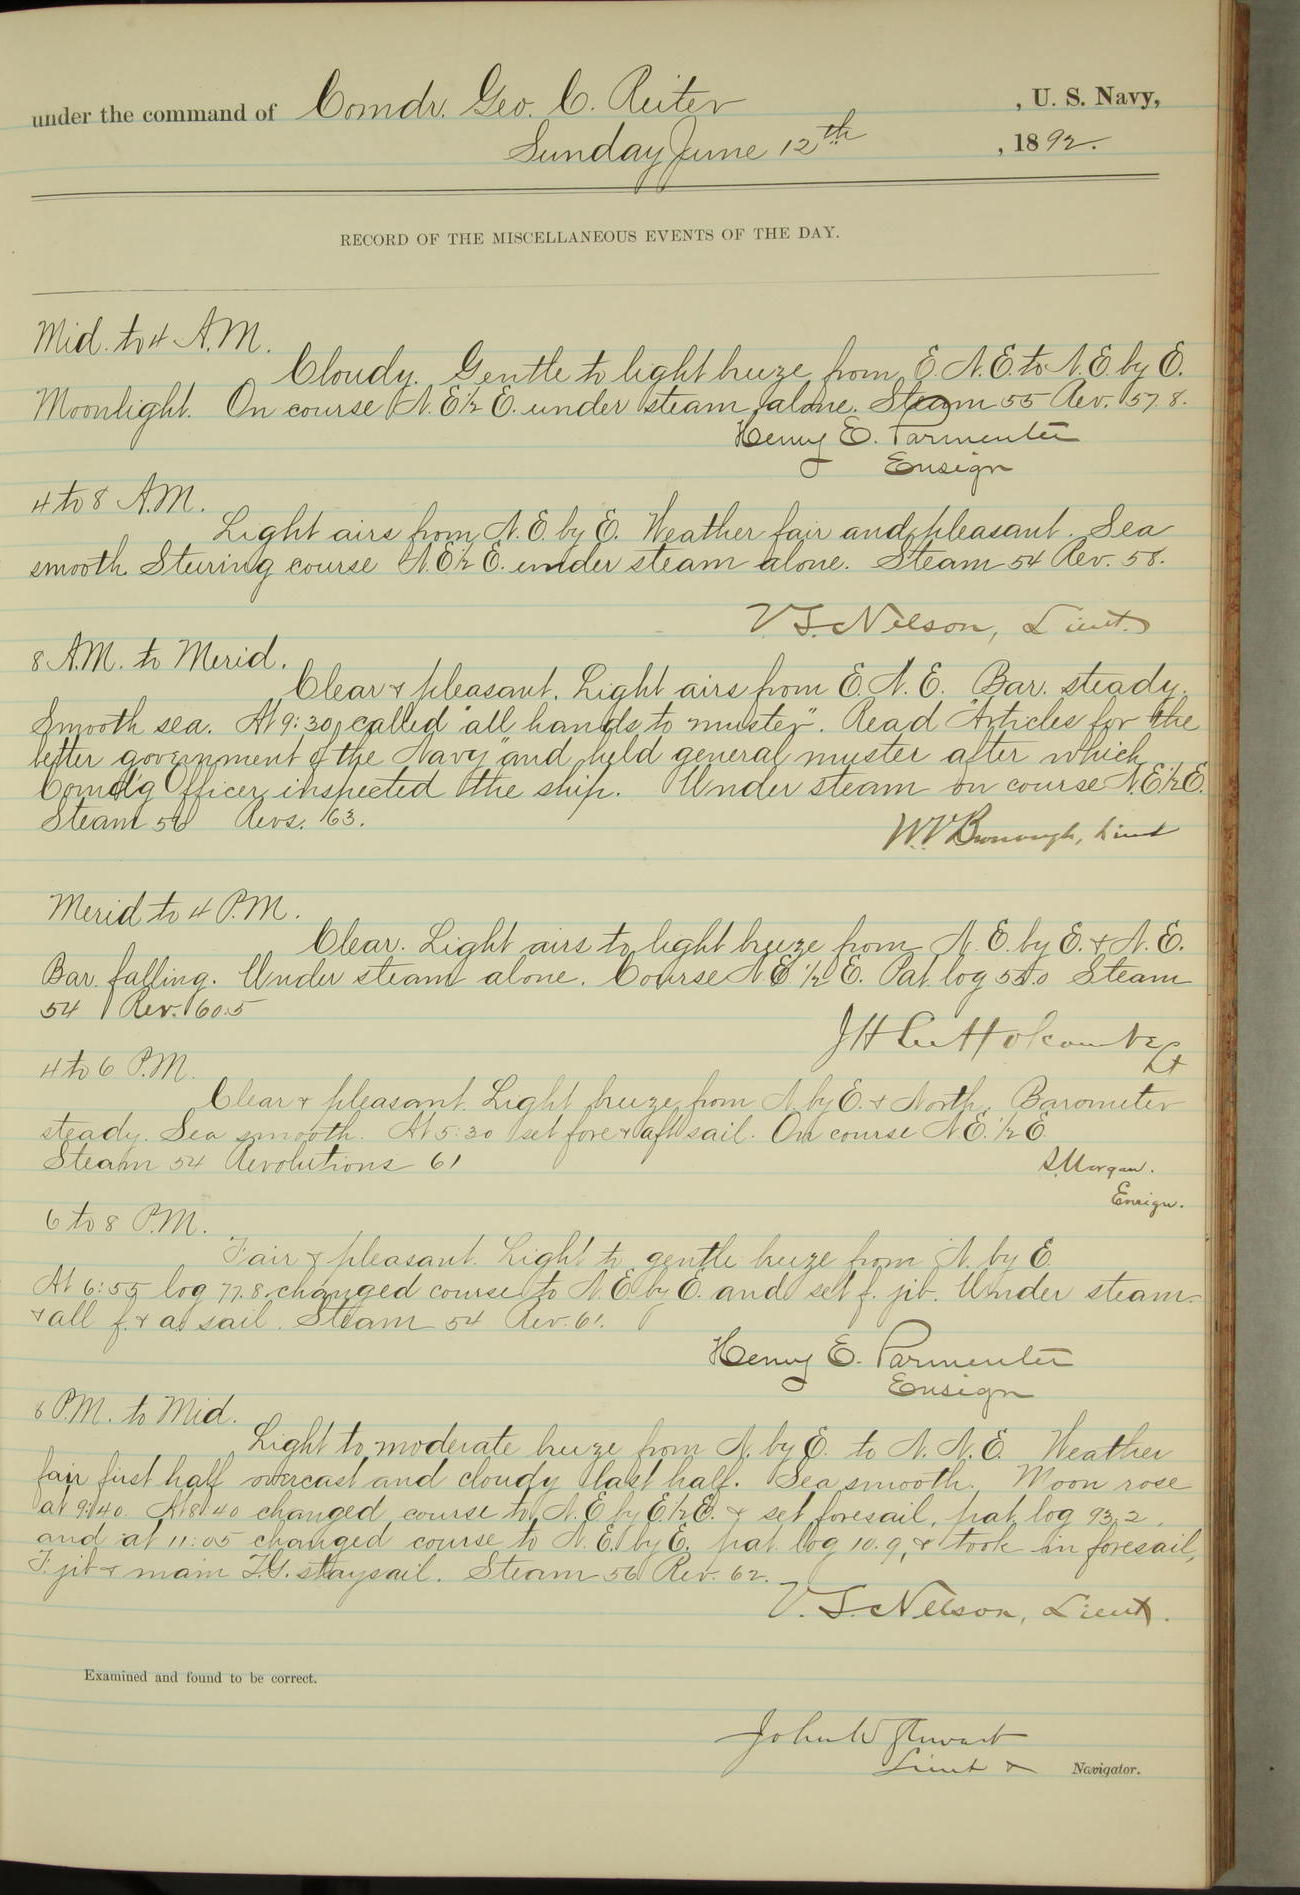 under the command of Comdr. Geo. C. Reiter, U. S. Navy,
Sunday June 12th, 1892.
RECORD OF THE MISCELLANEOUS EVENTS OF THE DAY.
Mid. to 4 A.M.
Cloudy. Gentle to light breeze from E.N.E. to N.E. by E.
Moonlight. On course N.E. 1/2 E. under steam alone. Steam 55 Rev. 57.8.
Henry E. Parmenter
Ensign
4 to 8 A.M.
Light airs from N.E. by E. Weather fair and pleasant. Sea
smooth. Steering course N.E. 1/2 E. under steam alone. Steam 54 Rev. 58.
V. S. Nelson, Lieut.
8 A.M. to Merid.
Clear & pleasant. Light airs from E.N.E. Bar. steady.
Smooth sea. At 9:30, called "all hands to muster". Read "Articles for the
better government of the Navy" and held general muster after which
Comd'g Officer inspected the ship. Under steam on course N.E. 1/2 E.
Steam 56 Revs. 63.
W. V. Bronaugh, Lieut
Merid to 4 P.M.
Clear. Light airs to light breeze from N.E. by E. & N.E.
Bar. falling. Under steam alone. Course N.E. 1/2 E. Pat. log 55.0 Steam
54 Rev. 60.5
Holcombe
Lt
4 to 6 P.M.
Clear & pleasant. Light breeze from N. by E. & North. Barometer
steady. Sea smooth. At 5:30 set fore & aft sail. On course N.E. 1/2 E.
Steam 54 Revolutions 61
Morgan.
Ensign.
6 to 8 P.M.
Fair & pleasant. Light to gentle breeze from N. by E.
At 6:55 log 77.8 changed course to N.E. by E. and set f. jib. Under steam
& all f. & a. sail. Steam 54 Rev. 61.
Henry E. Parmenter
Ensign
8 P.M. to Mid.
Light to moderate breeze from N. by E. to N.N.E. Weather
fair first half overcast and cloudy last half. Sea smooth. Moon rose
at 9:40. At 8:40 changed course to N.E. by E. 1/2 E. & set foresail, pat. log 93.2,
and at 11:05 changed course to N.E. by E. pat. log 10.9, & took in foresail,
F. jib & main T.G. staysail. Steam 56 Rev. 62.
V. S. Nelson, Lieut.
Examined and found to be correct.
John W Stewart
Lieut & Navigator.